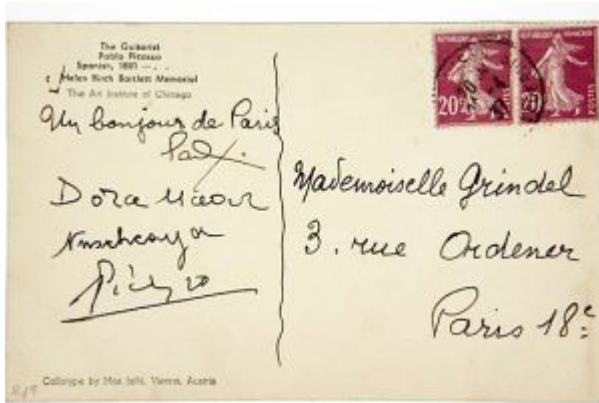 The Guitarist
Pablo Picasso
Spanish, 1881 —
Helen Birch Bartlett Memorial
The Art Institute of Chicago
Un bonjour de Paris
Dora Maar
Picasso
Collotype by Max Jaffé, Vienna, Austria
REPUBLIQUE FRANÇAISE
20c
POSTES
Mademoiselle Grindel
3. rue Ordener
Paris 18e